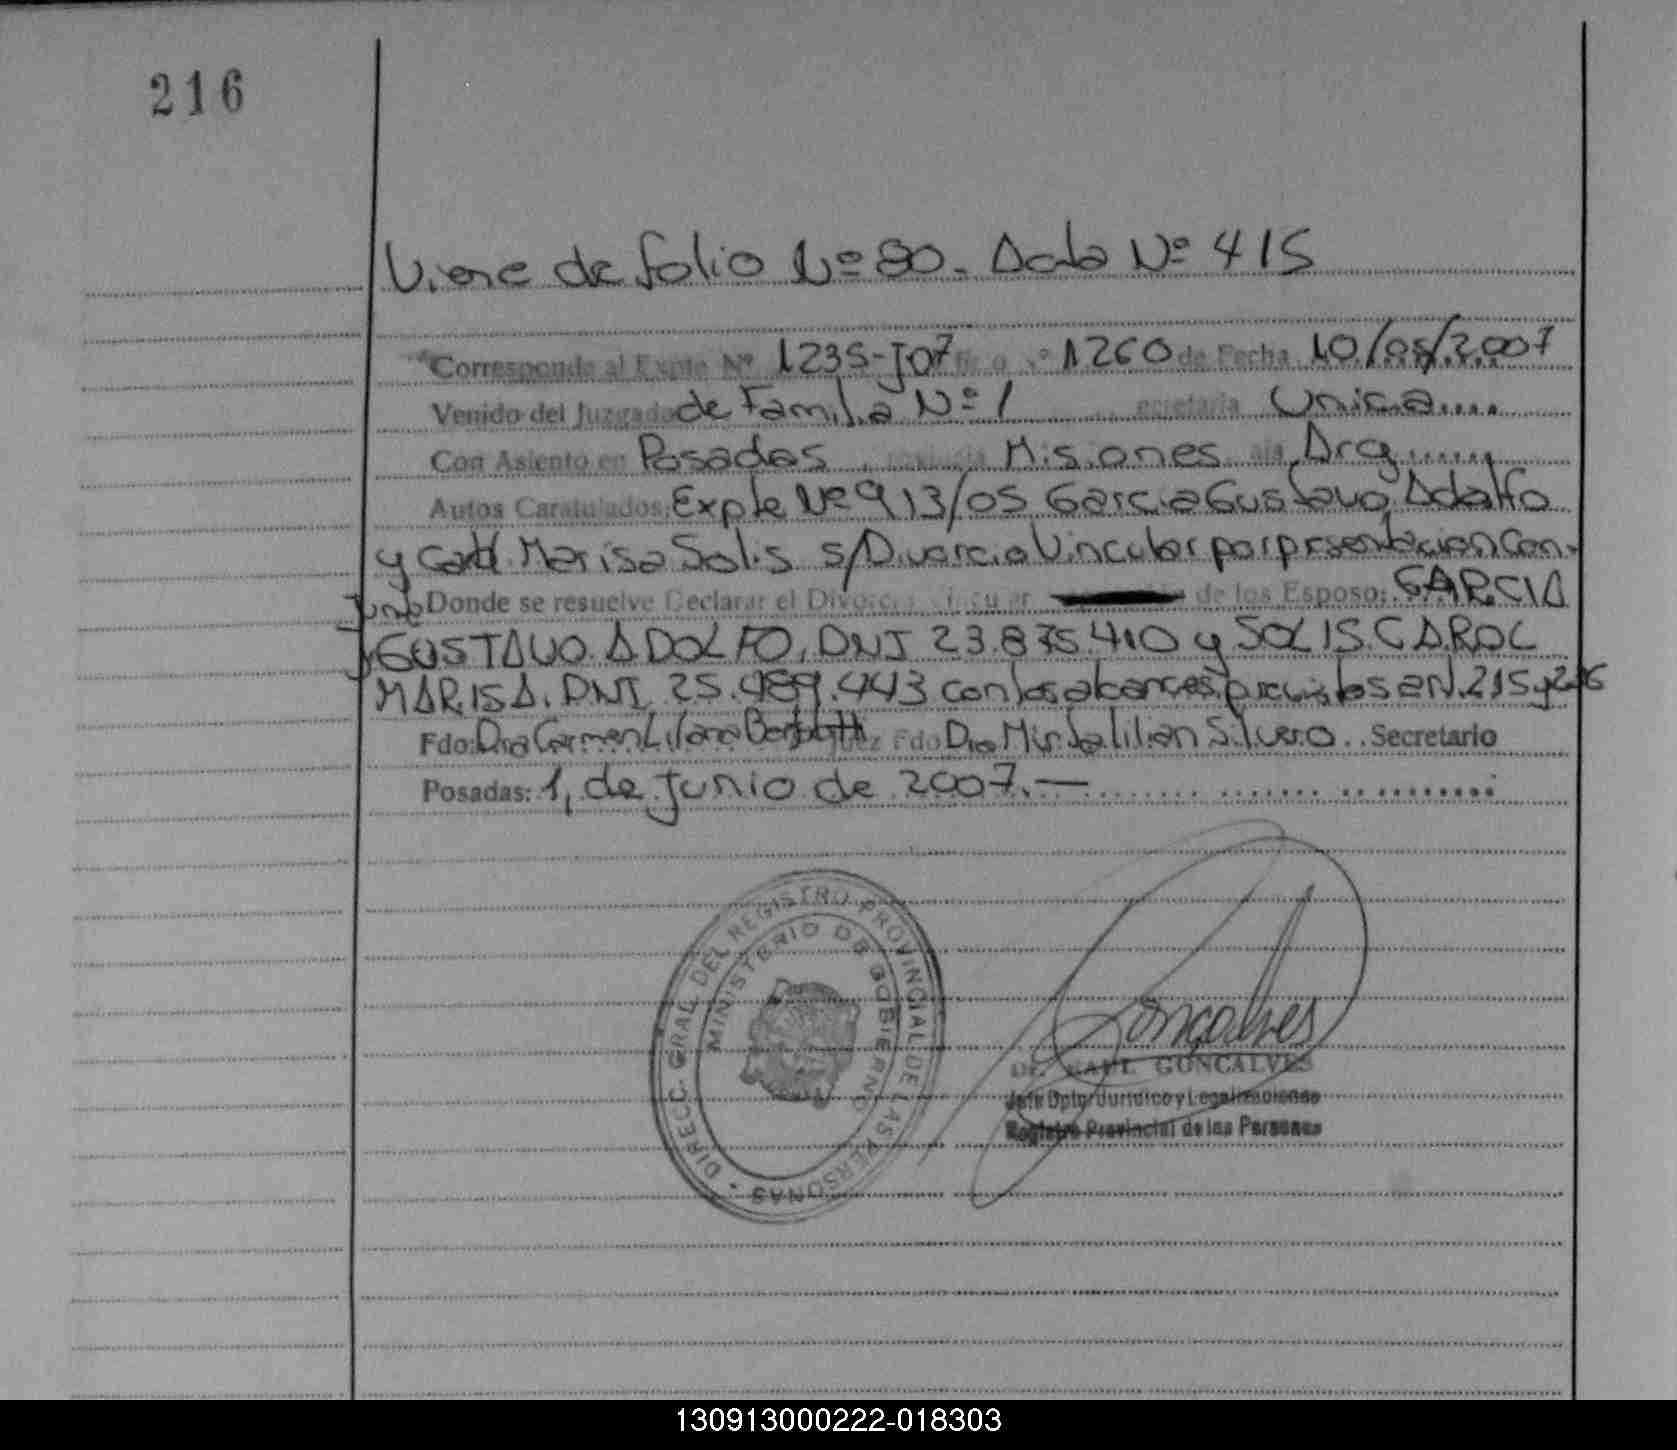 216
Viene de folio Nº 80. Acta Nº 415
Corresponde al Expte Nº 1235-J07 Nº 1260 de Fecha 10/05/2007
Venido del Juzgado de Familia Nº 1 ecretaria Unica....
Con Asiento en Posadas, Misiones Arg......
Autos Caratulados: Expte Nº 913/05 Garcia Gustavo Adolfo
y Marisa Solis s/Divorcio Vincular por presentacion Con-
junta Donde se resuelve Declarar el Divorcio Vincular de los Esposo: GARCIA
GUSTAVO ADOLFO, DNI 23.835.410 y SOLIS CAROL
MARISA. DNI 25.489.443 con los alcances previstos en 215 y 216
Fdo: Dra Carmen Liliana Juez Fdo Dra Mirta Lilian Silvero.. Secretario
Posadas: 1, de junio de 2007.—
DIRECC. GRAL. DEL REGISTRO PROVINCIAL DE LAS PERSONAS
MINISTERIO DE GOBIERNO
Goncalves
Dr. RAUL GONCALVES
Jefe Dpto. Juridico y Legalizaciones
Registro Provincial de las Personas
130913000222-018303